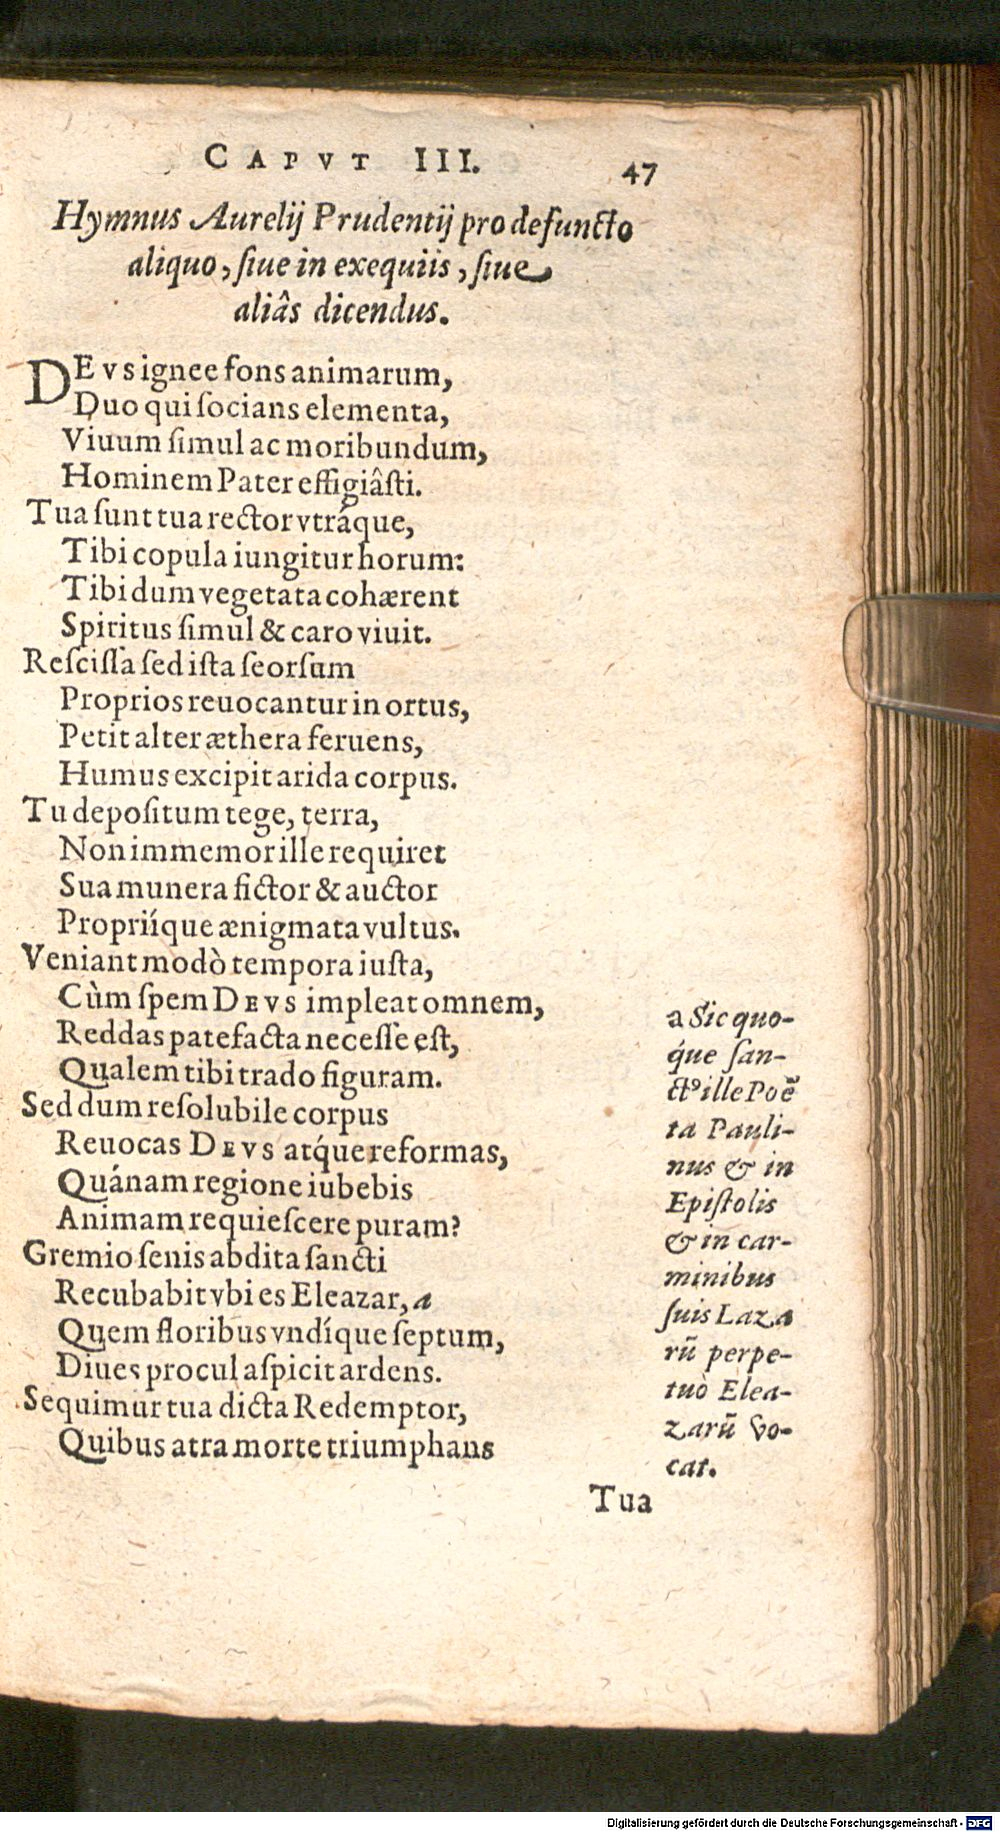 CAPVT III. 47
Hymnus Aurelij Prudentij pro defuncto
aliquo, siue in exequiis, siue
aliâs dicendus.
DEVS ignee fons animarum,
Duo qui socians elementa,
Viuum simul ac moribundum,
Hominem Pater effigiâsti.
Tua sunt tua rector vtráque,
Tibi copula iungitur horum:
Tibi dum vegetata cohærent
Spiritus simul & caro viuit.
Rescissa sed ista seorsum
Proprios reuocantur in ortus,
Petit alter æthera feruens,
Humus excipit arida corpus.
Tu depositum tege, terra,
Non immemor ille requiret
Sua munera fictor & auctor
Propriíque ænigmata vultus.
Veniant modò tempora iusta,
Cùm spem DEVS impleat omnem,
Reddas patefacta necesse est,
Qualem tibi trado figuram.
Sed dum resolubile corpus
Reuocas DEVS atq́ue reformas,
Quánam regione iubebis
Animam requiescere puram?
Gremio senis abdita sancti
Recubabit vbi es Eleazar, a
Quem floribus vndíque septum,
Diues procul aspicit ardens.
Sequimur tua dicta Redemptor,
Quibus atra morte triumphans
a Sic quo-
q́ue san-
ctꝰ ille Poë̃
ta Pauli-
nus & in
Epistolis
& in car-
minibus
suis Laza
rũ perpe-
tuò Elea-
zarũ vo-
cat.
Tua
Digitalisierung gefördert durch die Deutsche Forschungsgemeinschaft - DFG